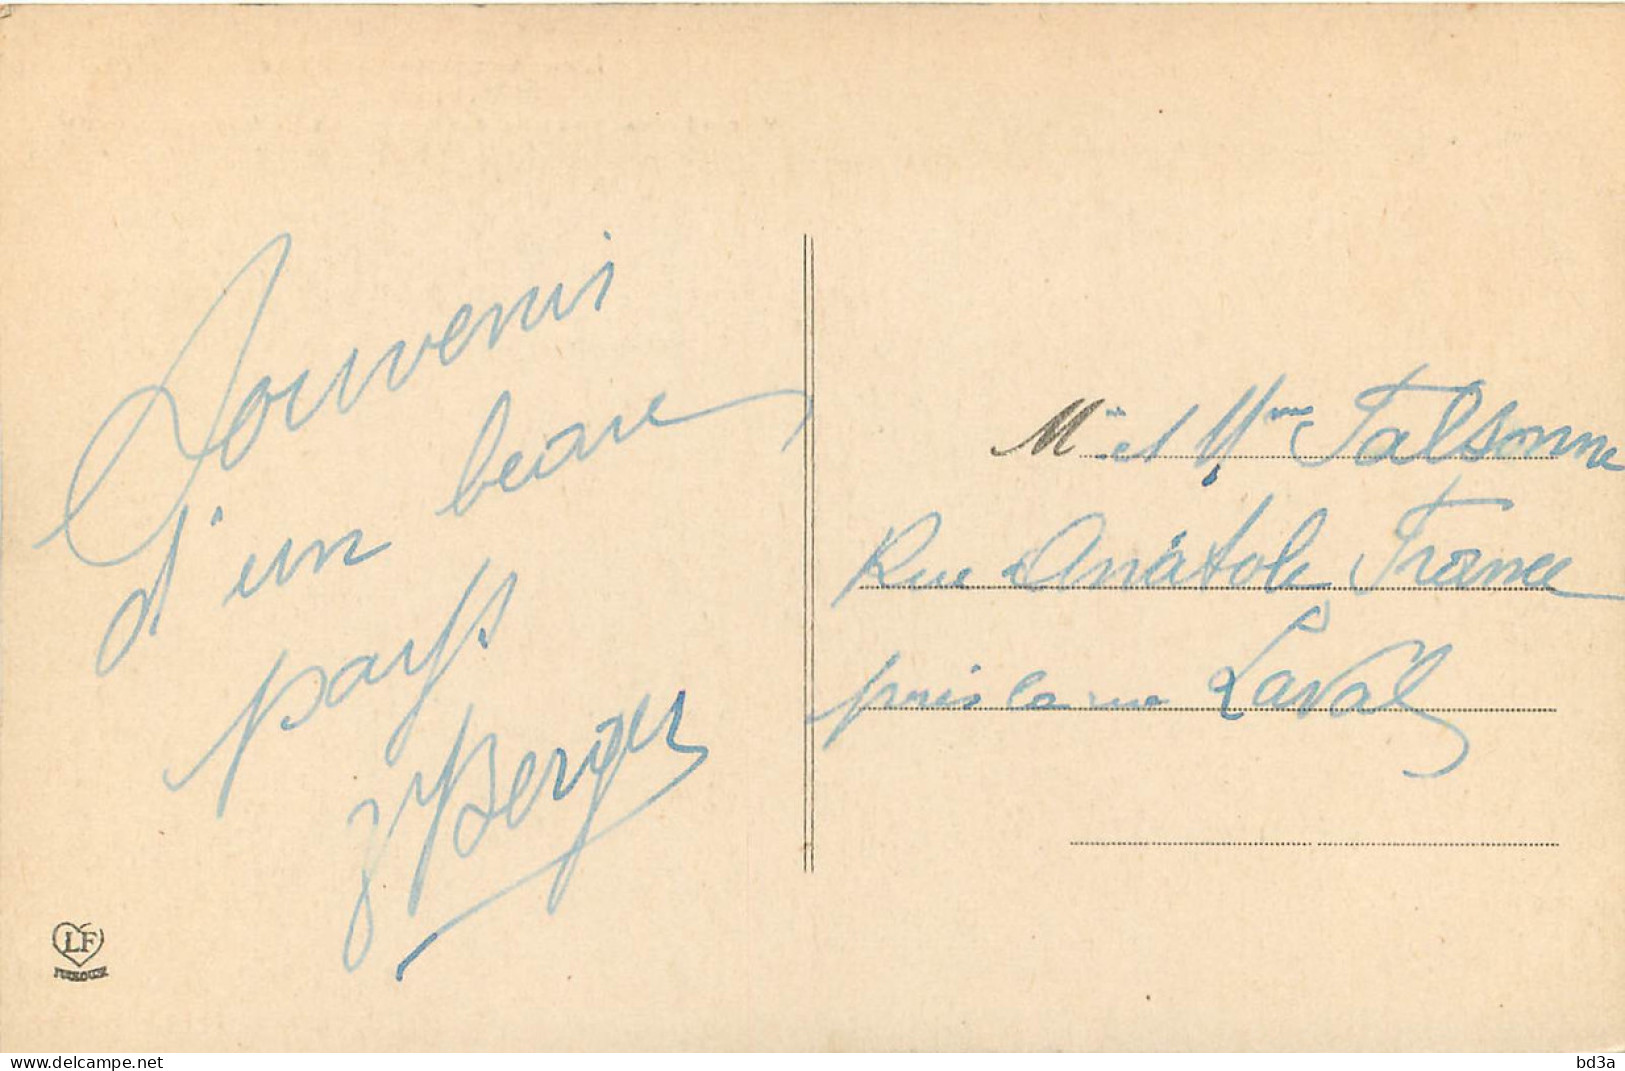 Souvenir
d'un beau
pays
Berger
LF
Mr et Mme Falsonne
Rue Anatole France
près la rue Laval
www.delcampe.net
bd3a